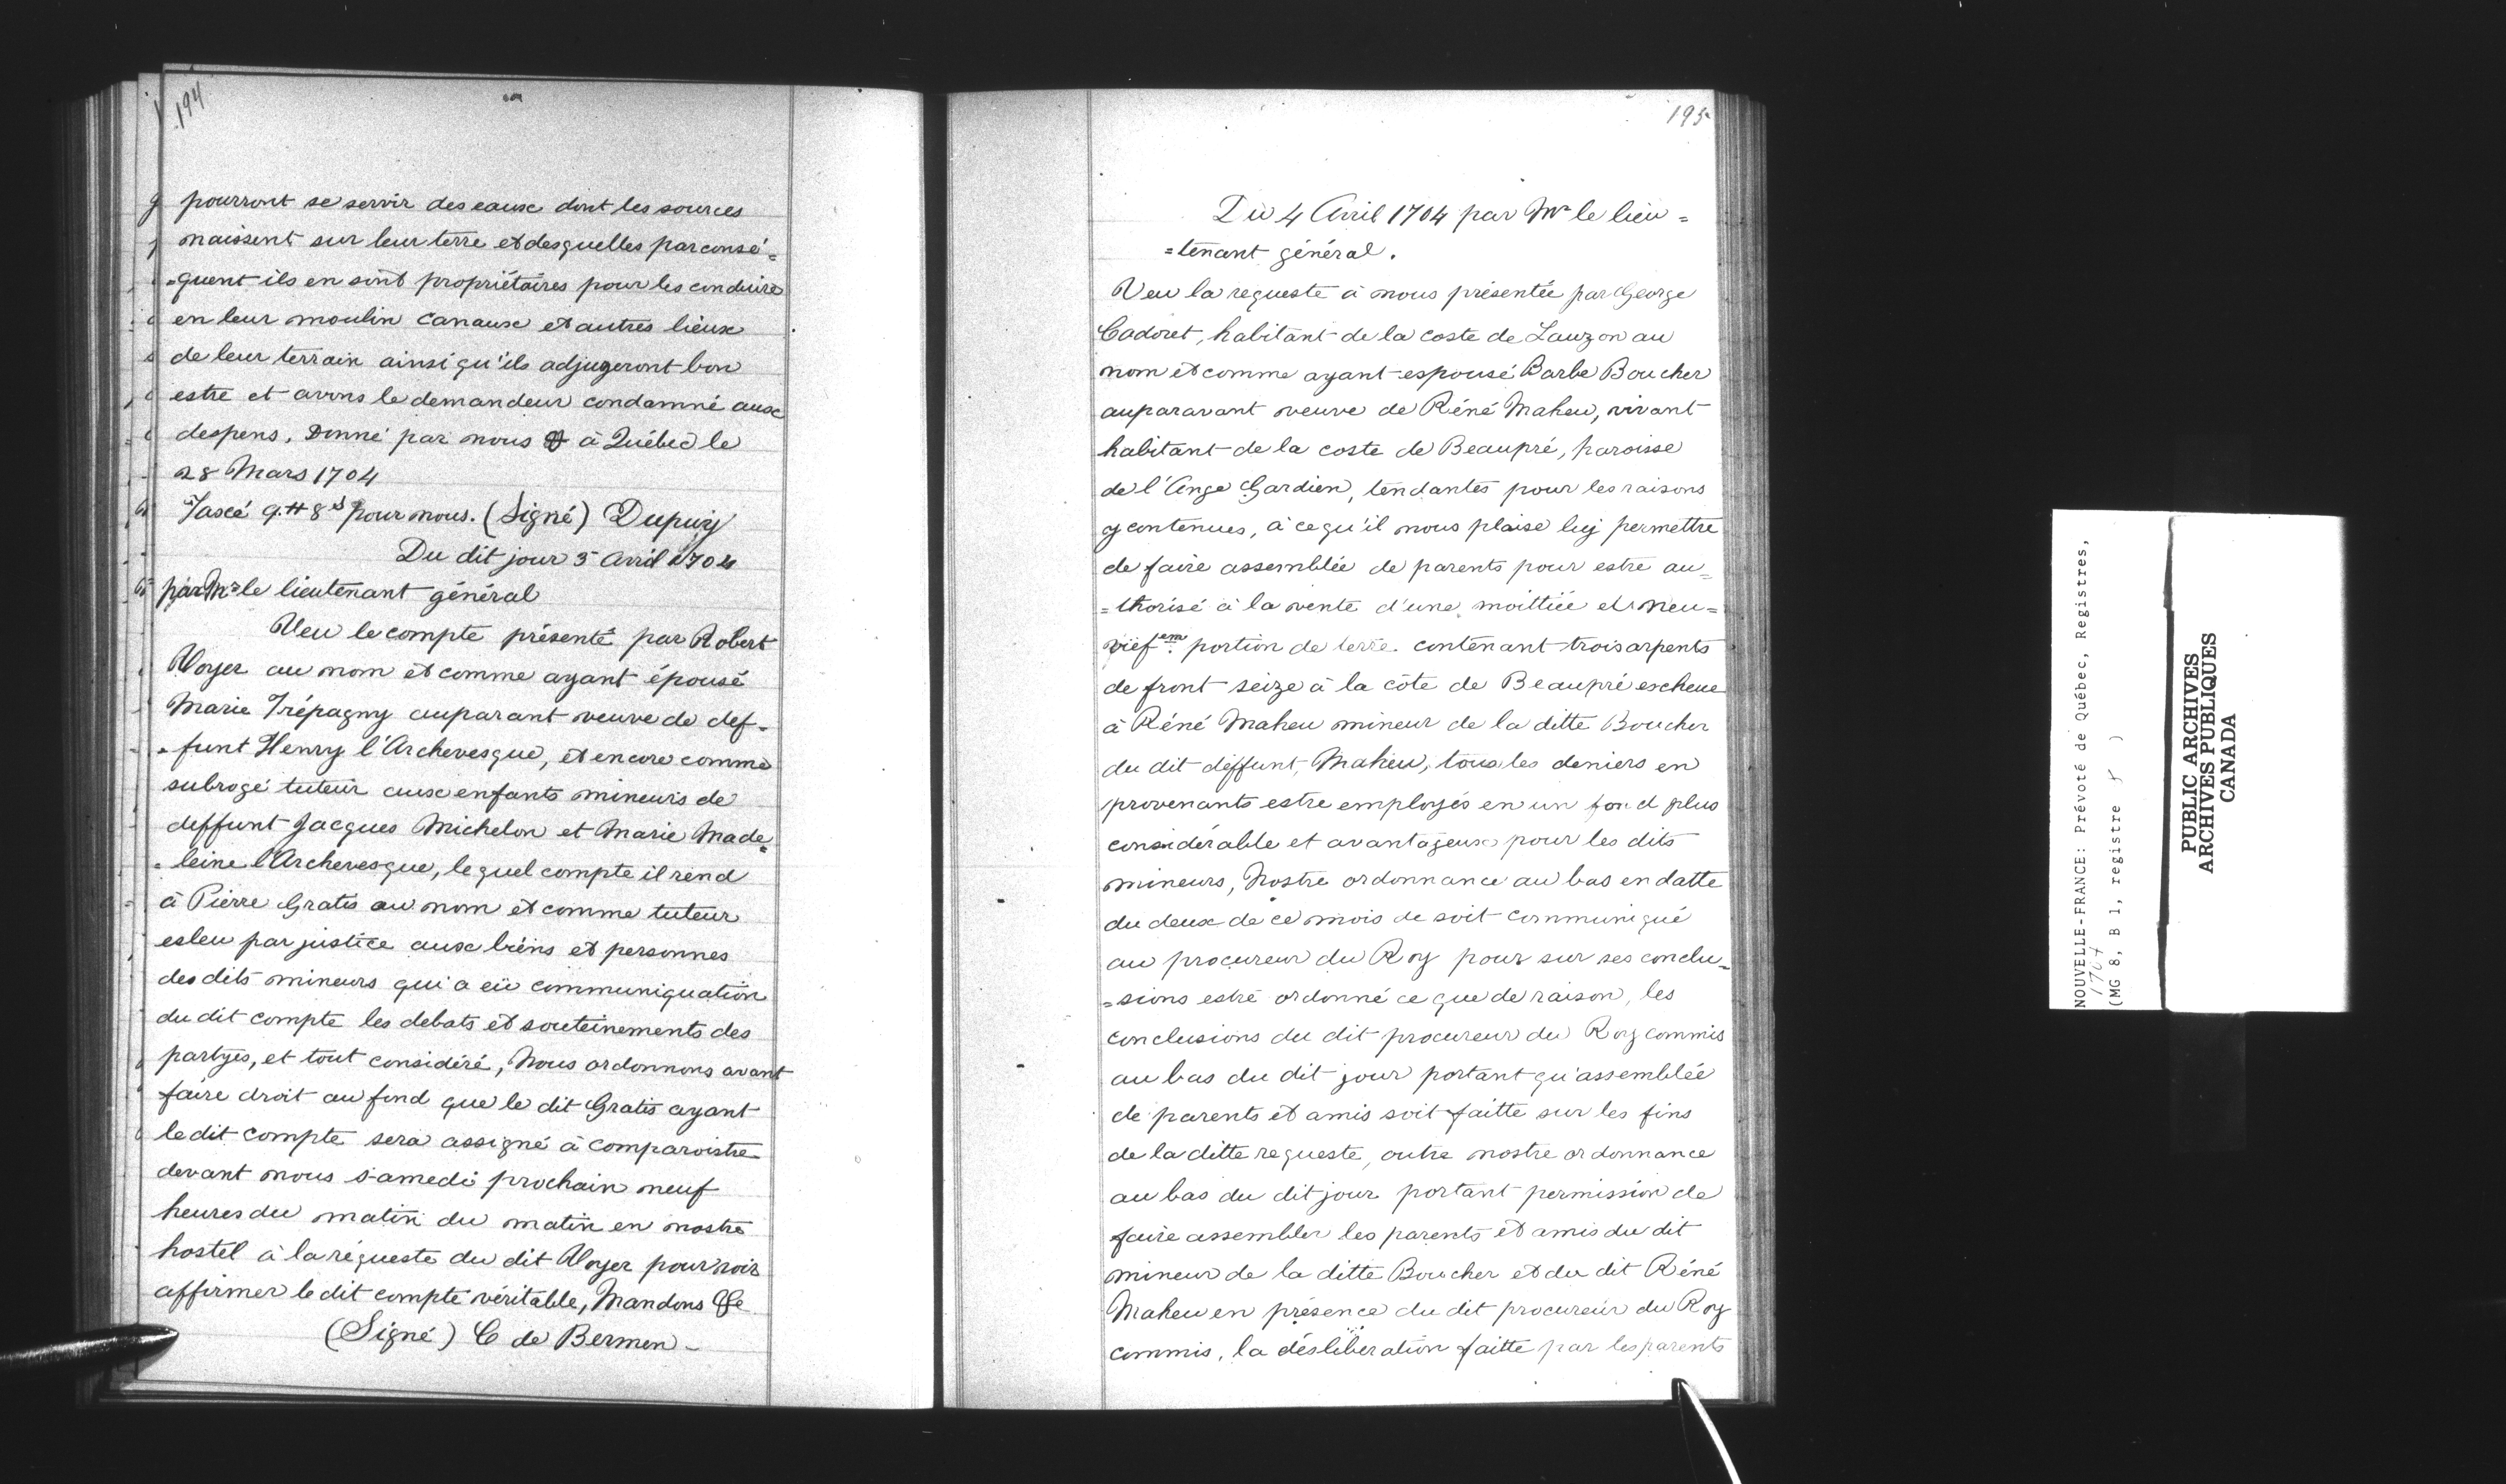 194
pourront se servir des eaux dont les sources
naissent sur leur terre et desquelles par consé=
=quent ils en sont propriétaires pour les conduire
en leur moulin canaux et autres lieux
de leur terrain ainsi qu'ils adjugeront bon
estre et avons le demandeur condamné aux
despens, Donné par nous à Québec le
28 Mars 1704
Taxé 9.tt 8s pour nous. (Signé) Dupuy
Du dit jour 3 avril 1704
par Mr le lieutenant général
Veu le compte présenté par Robert
Voyer au nom et comme ayant épousé
Marie Trépagny auparant veuve de def=
=funt Henry l'Archevesque, et encore comme
subrogé tuteur aux enfants mineurs de
deffunt Jacques Michelon et Marie Made=
=leine l'Archevesque, lequel compte il rend
à Pierre Gratis au nom et comme tuteur
esleu par justice aux biens et personnes
des dits mineurs qui a eü communiquation
du dit compte les debats et souteinements des
partyes, et tout considéré, Nous ordonnons avant
faire droit au fond que le dit Gratis ayant
le dit compte sera assigné à comparoistre
devant nous samedi prochain neuf
heures du matin du matin en nostre
hostel à la réqueste du dit Voyer pour voir
affirmer le dit compte véritable, Mandons &e
(Signé) C de Bermen-
195
Du 4 Avril 1704 par Mr le lieu=
=tenant général.
Veu la requeste à nous présentée par George
Cadoret, habitant de la coste de Lauzon au
nom et comme ayant espousé Barbe Boucher
auparavant veuve de Réné Maheu, vivant
habitant de la coste de Beaupré, paroisse
de l'Ange Gardien, tendantes pour les raisons
y contenues, à ce qu'il nous plaise luy permettre
de faire assemblée de parents pour estre au=
=thorisé à la vente d'une moittiée et neu=
vief em. portion de terre contenant trois arpents
de front seize à la côte de Beaupré escheue
à Réné Maheu mineur de la ditte Boucher
du dit deffunt, Maheu, tous les deniers en
provenants estre employés en un fond plus
considérable et avantageux pour les dits
mineurs, Nostre ordonnance au bas en datte
du deux de ce mois de soit communiqué
au procureur du Roy pour sur ses conclu=
=sions estre ordonné ce que de raison, les
conclusions du dit procureur du Roy commis
au bas du dit jour portant qu'assemblée
de parents et amis soit faitte sur les fins
de la ditte requeste, outre nostre ordonnance
au bas du dit jour portant permission de
faire assembler les parents et amis du dit
mineur de la ditte Boucher et du dit Réné
Maheu en présence du dit procureur du Roy
commis, la désliberation faitte par les parents
NOUVELLE-FRANCE: Prévoté de Québec, Registres,
1704
(MG 8, B 1, registre 5 )
PUBLIC ARCHIVES
ARCHIVES PUBLIQUES
CANADA